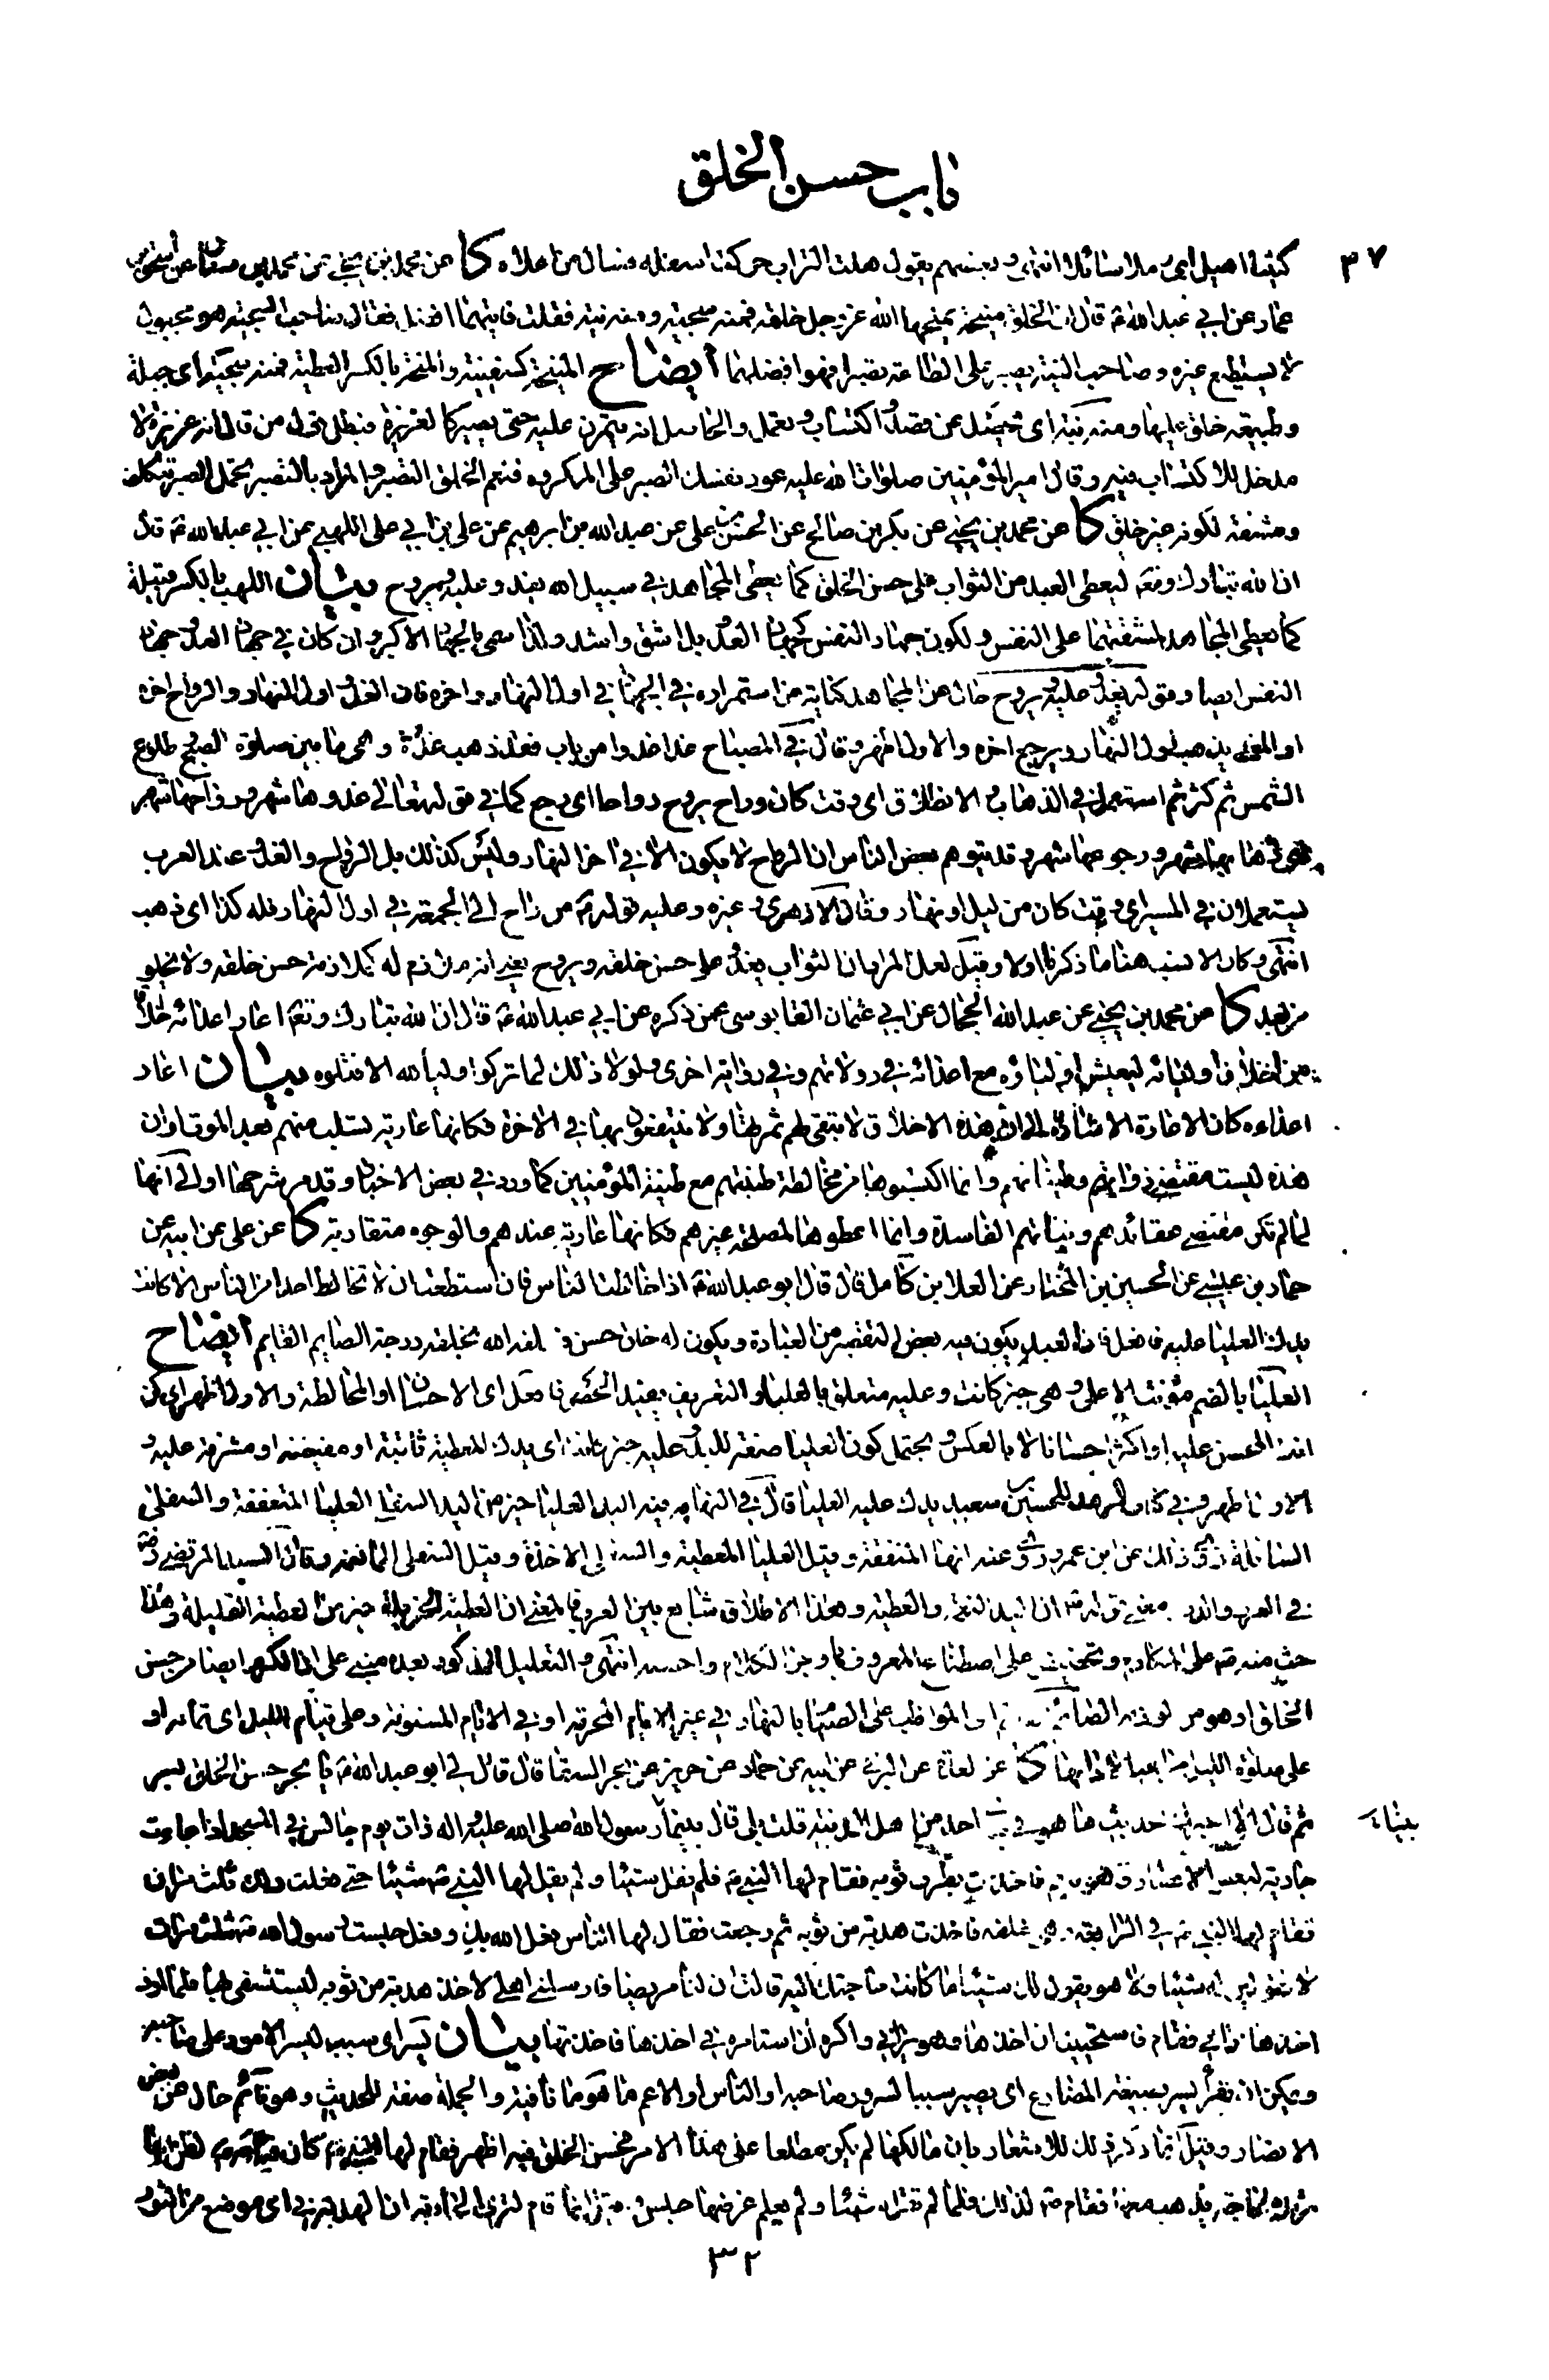 باب حسن الخلق
٣٧
عمار عن ابي عبد الله ع قال ان الخلق منيحة يمنحها الله عز وجل خلقه فمنه سجية ومنه نية فقلت فايتهما افضل فقال صاحب السجية هو مجبول
لا يستطيع غيره وصاحب النية يصبر على الطاعة تصبرا فهو افضلهما ايضاح المنيحة كسفينة والمنحة بالكسر العطية فمنه سجية اى جبلة
وطبيعة خلق عليها ومنه نية اى تحصل عن قصد واكتساب وتعمل والحاصل انه يتمرن عليه حتى يصير كالغريزة فبطل قول من قال انه غريزة لا
مدخل للاكتساب فيه وقال امير المؤمنين صلوات الله عليه عود نفسك الصبر على المكروه فنعم الخلق التصبر والمراد بالتصبر تحمل الصبر بتكلف
ومشقة لكونه غير خلق كا عن محمد بن يحيى عن بكر بن صالح عن الحسن بن على عن عبد الله بن ابرهيم عن على بن ابي على اللهبي عن ابي عبد الله ع قال
ان الله تبارك وتعه ليعطى العبد من الثواب على حسن الخلق كما يعطى المجاهد في سبيل الله يغدو عليه ويروح بيان اللهب بالكسر قبيلة
كما يعطى المجاهد لمشقتهما على النفس ولكون جهاد النفس كجهاد العدو بل اشق واشد ولذا سمى بالجهاد الاكبر وان كان في جهاد العدو جهاد
النفس ايضا وقوله يغدو عليه ويروح حال عن المجاهد كناية عن استمراره في الجهاد في اول النهار واخره فان الغدو اول النهار والرواح اخره
او المعنى يذهب اول النهار ويرجع اخره والاول اظهر وقال في المصباح غدا غدوا من باب قعد ذهب غدوة وهى ما بين صلوة الصبح وطلوع
الشمس ثم كثر ثم استعمل في الذهاب والانطلاق اى وقت كان وراح يروح رواحا اى رجع كما في قوله تعالى غدوها شهر ورواحها شهر
اى ذهابها شهر ورجوعها شهر وقد يتوهم بعض الناس ان الرواح لا يكون الا في اخر النهار وليس كذلك بل الرواح والغدو عند العرب
يستعملان في المسير اى وقت كان من ليل او نهار وقال الازهرى وغيره وعليه قوله ع من راح الى الجمعة في اول النهار فله كذا اى ذهب
انتهى وكان الانسب هنا ما ذكرنا اولا وقيل لعل المراد ان الثواب يغدو على حسن خلقه ويروح يعنى انه ملازم له كملازمة حسن خلقه ولا يخلو
من بعد كا عن محمد بن يحيى عن عبد الله الحجال عن ابي عثمان القابوسى عمن ذكره عن ابي عبد الله ع قال ان الله تبارك وتعه اعار اعدائه اخلاقا
من اخلاق اوليائه ليعيش اوليائه مع اعدائه في دولاتهم وفي رواية اخرى ولولا ذلك لما تركوا وليا لله الا قتلوه بيان اعار
اعداءه كان الاعارة الاشارة الى ان هذه الاخلاق لا تبقى لهم ثمرتها ولا ينتفعون بها في الاخرة فكانها عارية تسلب منهم بعد الموت او ان
هذه ليست مقتضى ذواتهم وطيناتهم وانما اكتسبوها من مخالطة طينتهم مع طينة المؤمنين كما ورد في بعض الاخبار وقد مر شرحها او الى انها
لما لم تكن مقتضى عقائدهم ونياتهم الفاسدة وانما اعطوها لمصلحة غيرهم فكانها عارية عندهم والوجوه متقاربة كا عن على عن ابيه عن
حماد بن عيسى عن الحسين بن المختار عن العلا بن كامل قال قال ابو عبد الله ع اذا خالطت الناس فان استطعت ان لا تخالط احدا من الناس الا كانت
يدك العليا عليه فافعل فان العبد يكون فيه بعض التقصير من العبادة ويكون له خلق حسن فيبلغه الله بخلقه درجة الصايم القايم ايضاح
العليا بالضم مؤنث الاعلى وهى خبر كانت وعليه متعلق بالعليا والتعريف يفيد الحصر فافعل اى الاحسان او المخالطة والاول اظهر اى كن
انت المحسن عليه او اكثر احسانا لا بالعكس ويحتمل كون العليا صفة لليد وعليه خبر كانت اى يدك المعطية ثابتة او مفيضة او مشرفة عليه و
الاول اظهر وفي كتاب الزهد للحسين بن سعيد يدك عليه العليا قال في النهاية فيه اليد العليا خير من اليد السفلى العليا المتعففة والسفلى
السائلة روى ذلك عن ابن عمر وروى عنه انها المنفقة وقيل العليا المعطية والسفلى الاخذة وقيل السفلى المانعة وقال السيد المرتضى رضه
في الغرر والدرر معنى قوله ص ان اليد النعمة والعطية وهذا الاطلاق شايع بين العرب فالمعنى ان العطية الجزيلة خير من العطية القليلة وهذا
حث منه ص على المكارم وتحضيض على اصطناع المعروف باوجز الكلام واحسنه انتهى والتعليل المذكور بعده مبنى على ان الكرم ايضا من حسن
الخلق او هو من لوازمه الصائم القائم اى المواظب على الصيام بالنهار في غير الايام المحرمة او في الايام المسنونة وعلى قيام الليل اى تمامه او
على صلوة الليل مراعيا لآدابها كا عن العدة عن البرقى عن ابيه عن حماد عن حريز عن بحر السقا قال قال لى ابو عبد الله ع يا بحر حسن الخلق يسر
بيان
ثم قال الا اخبرك بحديث ما هو في يدى احد من اهل المدينة قلت بلى قال بينما رسول الله صلى الله عليه واله ذات يوم جالس في المسجد اذ جاءت
جارية لبعض الانصار وهو قائم فاخذت بطرف ثوبه فقام لها النبى ص فلم تقل شيئا ولم يقل لها النبى ص شيئا حتى فعلت ذلك ثلث مرات
فقام لها النبى ص في الرابعة وهى خلفه فاخذت هدبة من ثوبه ثم رجعت فقال لها الناس فعل الله بك وفعل حبست رسول الله ص ثلث مرات
لا تقولين له شيئا ولا هو يقول لك شيئا ما كانت حاجتك اليه قالت ان لنا مريضا فارسلنى اهلى لاخذ هدبة من ثوبه ليستشفى بها فلما اردت
اخذها رانى فقام فاستحييت ان اخذها وهو يرانى واكره ان استامره في اخذها فاخذتها بيان يسر اى سبب ليسر الامور على صاحبه
ويمكن ان يقرأ يسر بصيغة المضارع اى يصير سببا لسرور صاحبه او الناس او الاعم ما هو ما نافية والجملة صفة للحديث وهو قائم حال عن بعض
الانصار وقيل انما ذكر ذلك للاشعار بان مالكها لم يكن مطلعا على هذا الامر فحسن الخلق فيه اظهر فقام لها النبى ص كان قيامه ص لظن انها
تريده لحاجة يذهب معها فقام ص لذلك فلما لم تقل شيئا ولم يعلم غرضها جلس وقيل انما قام لترى الجارية ان الهدبة في اى موضع من الثوب
٣٢